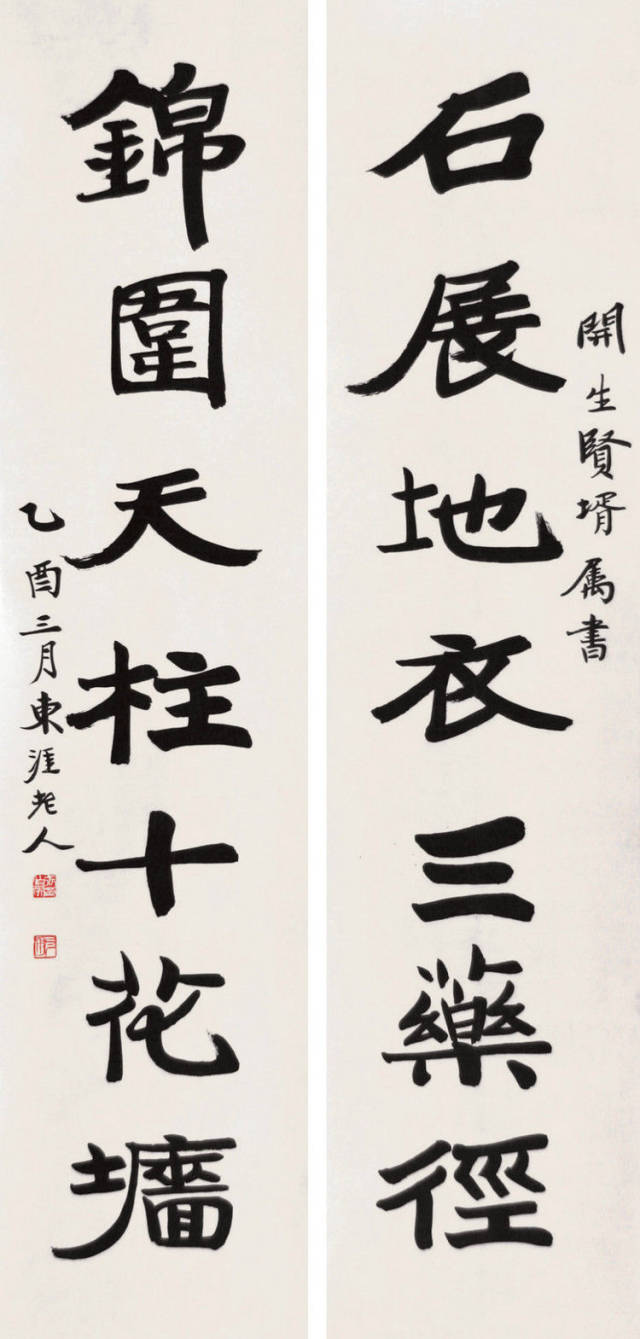 開生賢壻属書
石展地衣三藥徑
錦圍天柱十花墻
乙酉三月東涯老人